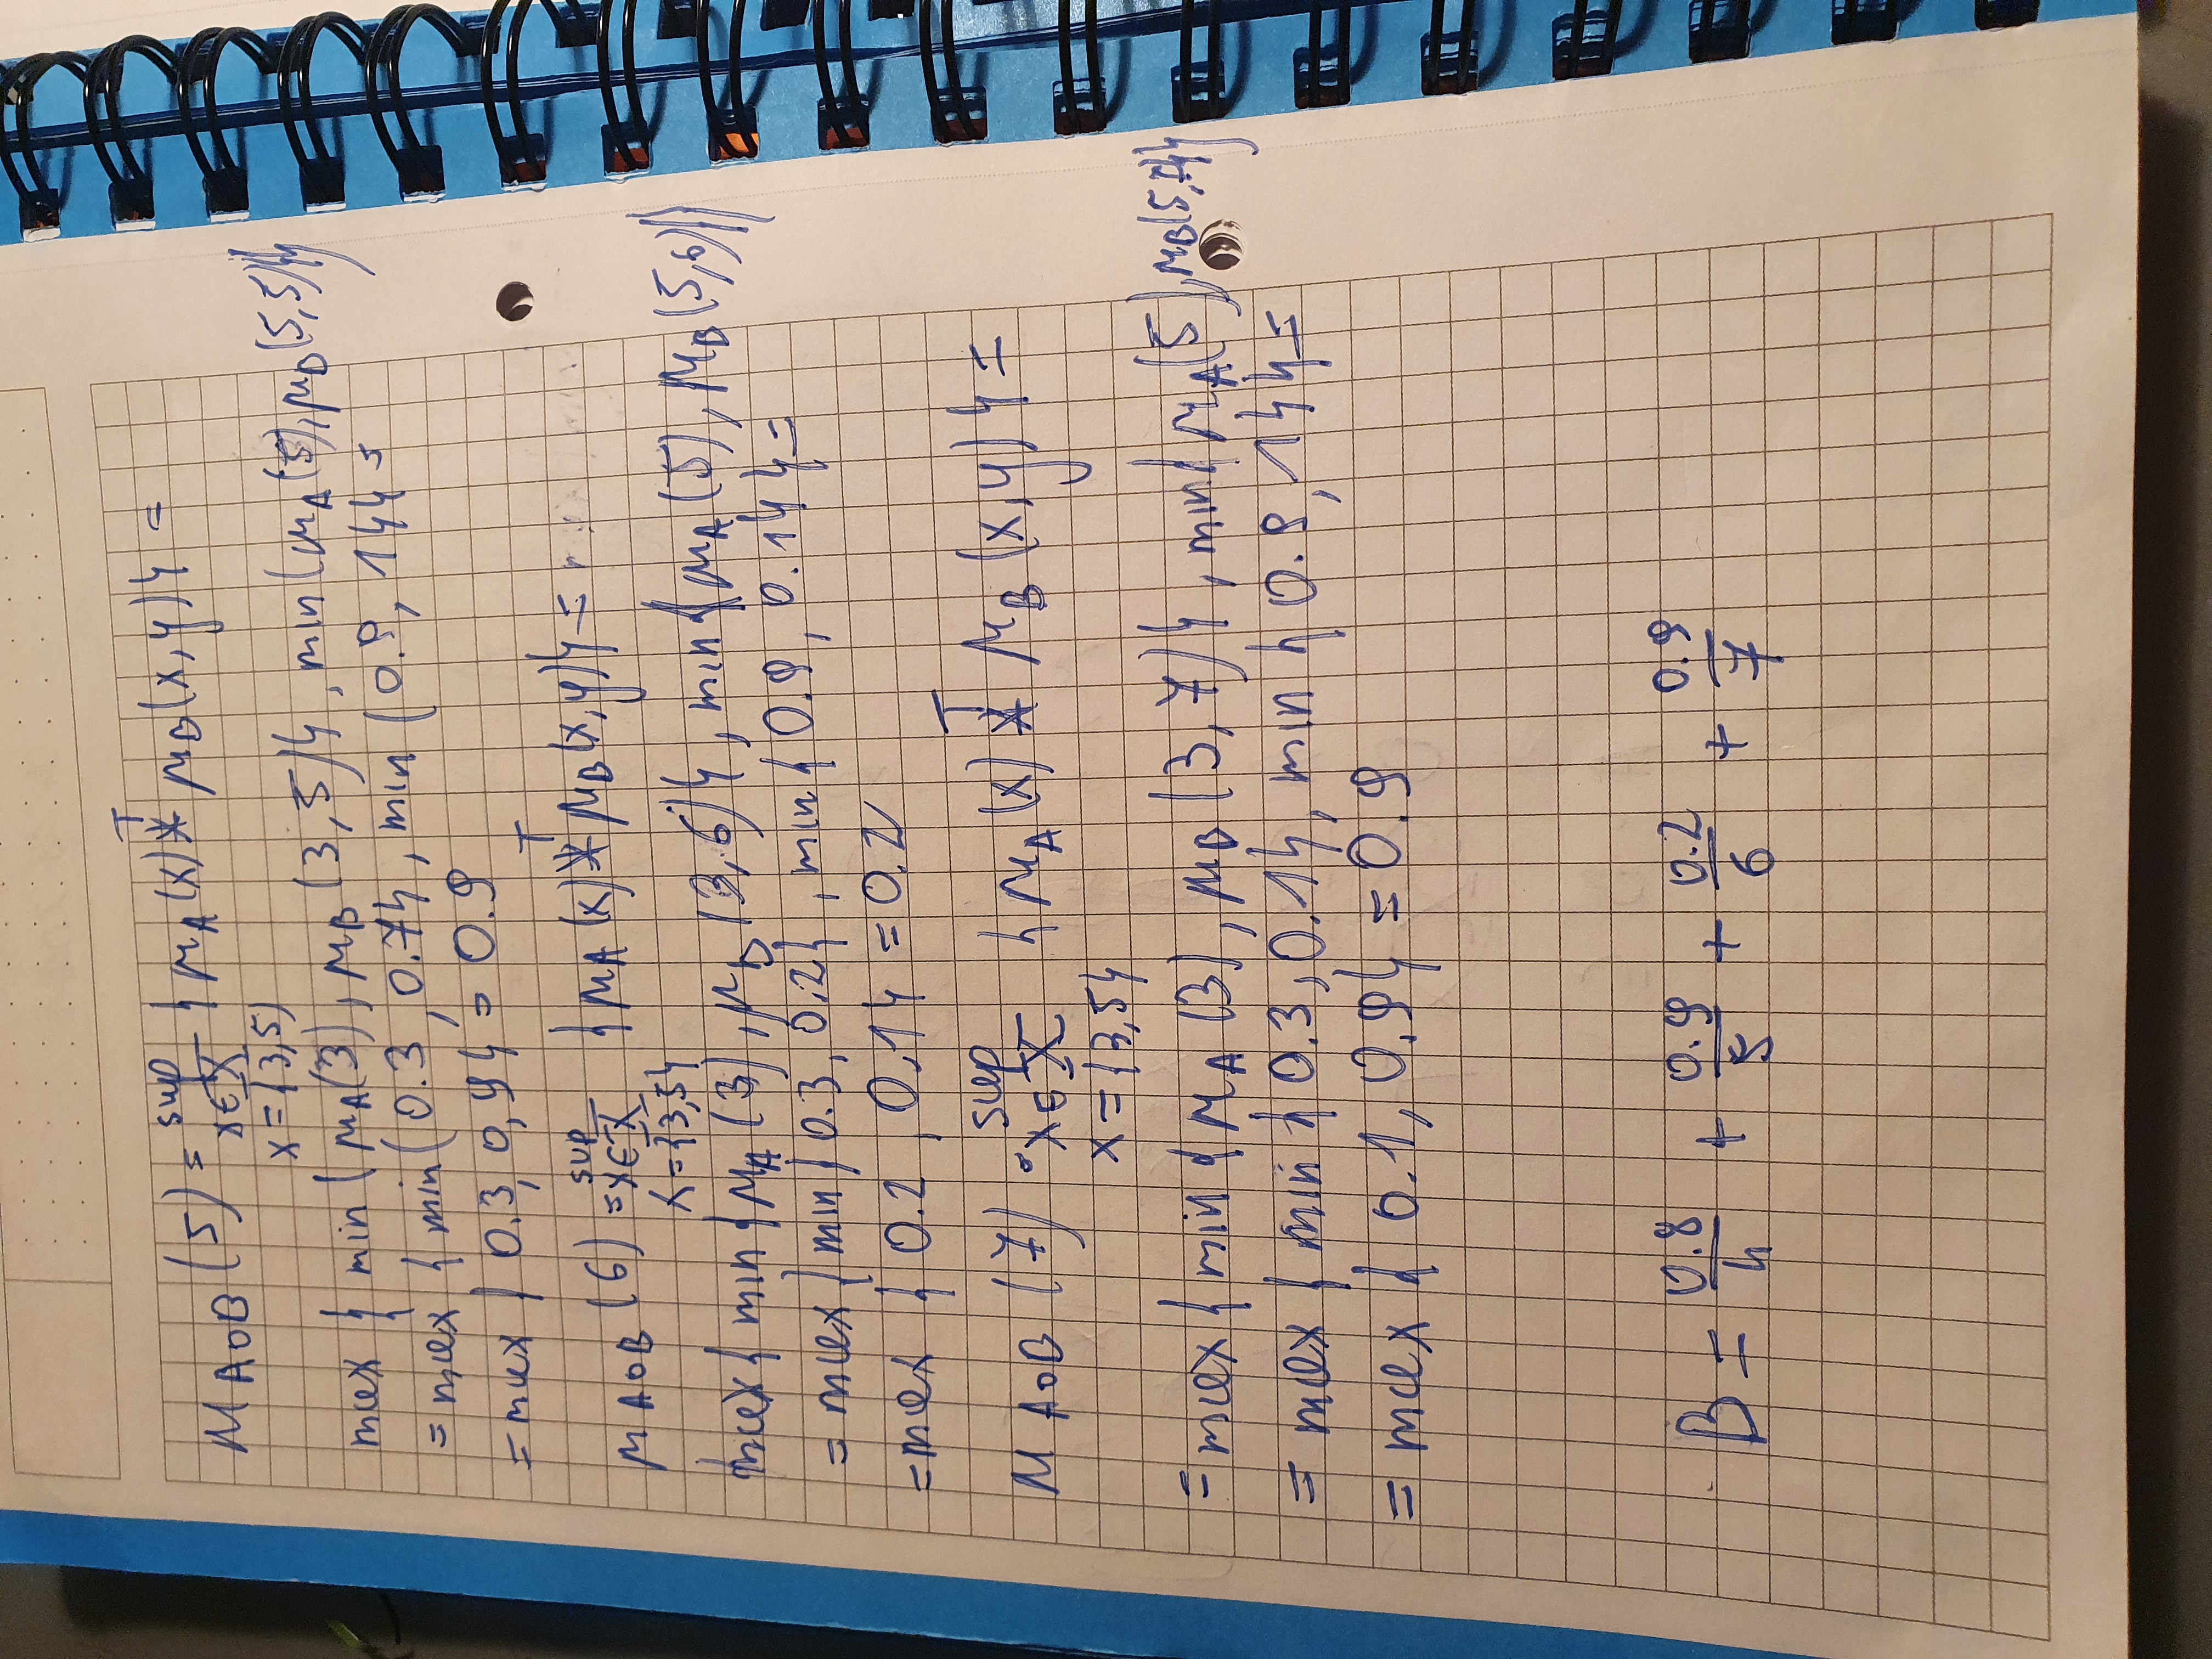 μ_A∘B (5) = sup {μ_A(x) *^T μ_B(x,y)} =
x∈X
x={3,5)
max { min (μ_A(3), μ_B(3,5)}, min(μ_A(5), μ_B(5,5)}}
= max { min(0.3, 0.7}, min (0.9, 1}} =
= max { 0.3, 0,9} = 0.9
μ_A∘B (6) = sup {μ_A(x) *^T μ_B(x,y)} =
x∈X
x={3,5}
max{ min {μ_A(3), μ_B(3,6)}, min{μ_A(5), μ_B(5,6)}}
= max{ min{ 0.3, 0.2}, min{ 0.9, 0.1}} =
= max { 0.2, 0.1} = 0.2
μ_A∘B (7) = sup {μ_A(x) *^T μ_B(x,y)} =
x∈X
x={3,5}
= max{ min {μ_A(3), μ_B(3,7)}, min{ μ_A(5), μ_B(5,7)}}
= max { min { 0.3, 0.1}, min { 0.9, 1}} =
= max { 0.1, 0.9} = 0.9
B = 0.8/4 + 0.9/5 + 0.2/6 + 0.9/7